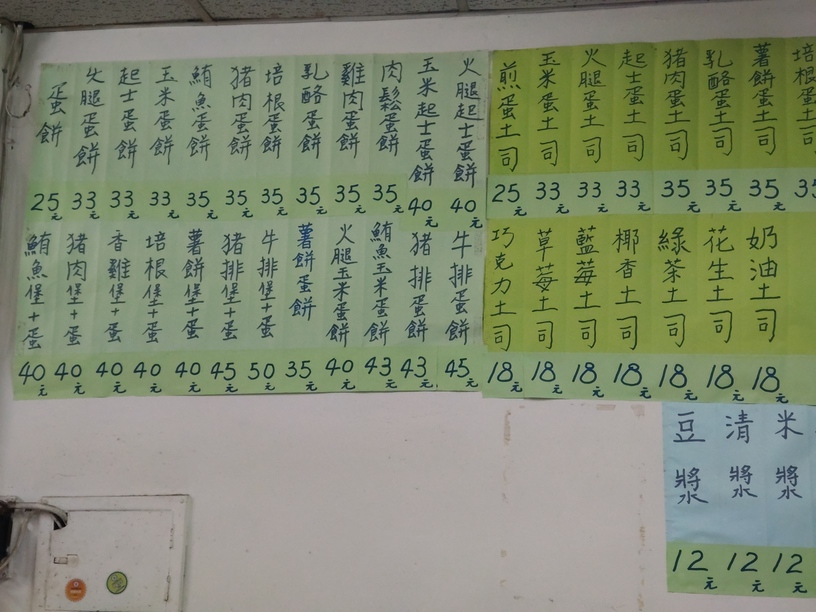 蛋餅 25元
火腿蛋餅 33元
起士蛋餅 33元
玉米蛋餅 33元
鮪魚蛋餅 35元
猪肉蛋餅 35元
培根蛋餅 35元
乳酪蛋餅 35元
雞肉蛋餅 35元
肉鬆蛋餅 35元
玉米起士蛋餅 40元
火腿起士蛋餅 40元
煎蛋土司 25元
玉米蛋土司 33元
火腿蛋土司 33元
起士蛋土司 33元
猪肉蛋土司 35元
乳酪蛋土司 35元
薯餅蛋土司 35元
培根蛋土 35
鮪魚堡+蛋 40元
猪肉堡+蛋 40元
香雞堡+蛋 40元
培根堡+蛋 40元
薯餅堡+蛋 40元
猪排堡+蛋 45元
牛排堡+蛋 50元
薯餅蛋餅 35元
火腿玉米蛋餅 40元
鮪魚玉米蛋餅 43元
猪排蛋餅 43元
牛排蛋餅 45元
巧克力土司 18元
草莓土司 18元
藍莓土司 18元
椰香土司 18元
綠茶土司 18元
花生土司 18元
奶油土司 18元
豆漿 12元
清漿 12元
米漿 12元